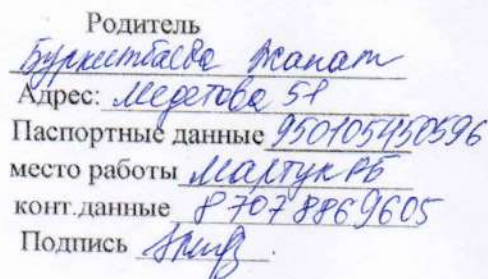 Родитель
Буркитбаева Жанат
Адрес: Медетова 51
Паспортные данные 950105450596
место работы Мартук РБ
конт.данные 8 707 8869605
Подпись